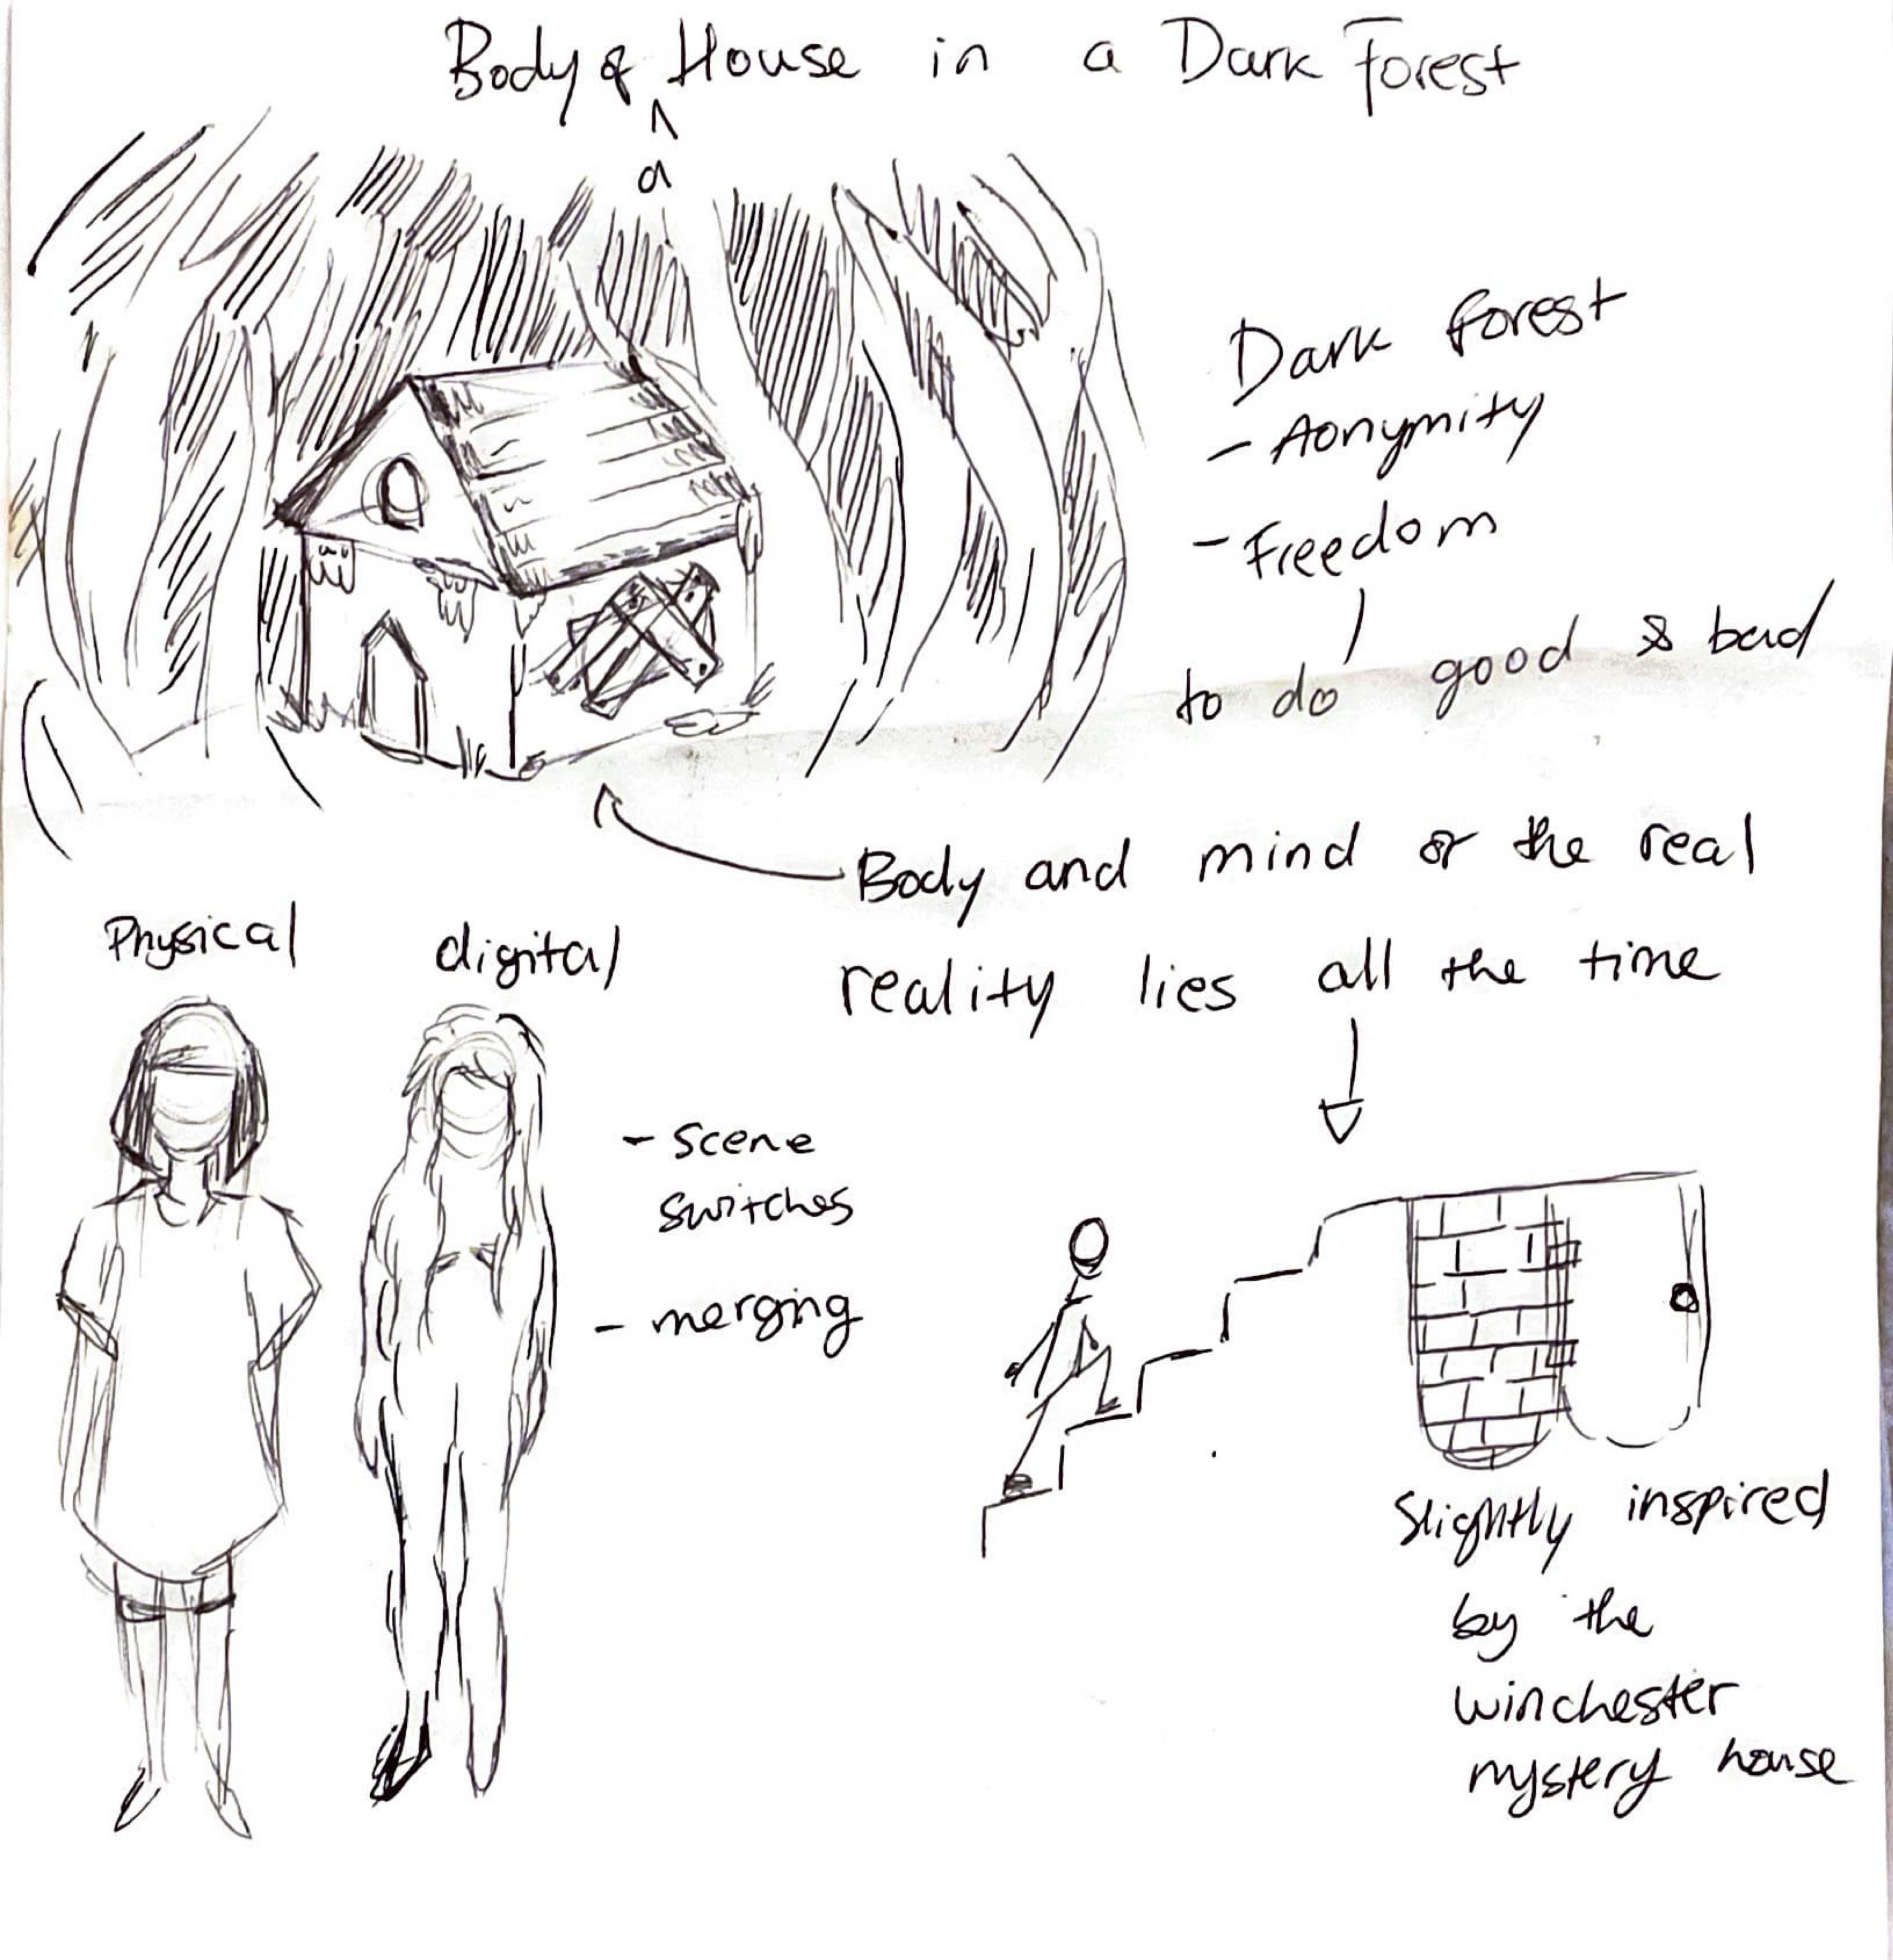 Body of House in a Dark Forest
^
a
Dark forest
- Aonymity
- Freedom
to do good & bad
Body and mind or the real
reality lies all the time
Physical digital
- scene
switches
- merging
Slightly inspired
by the
winchester
mystery house